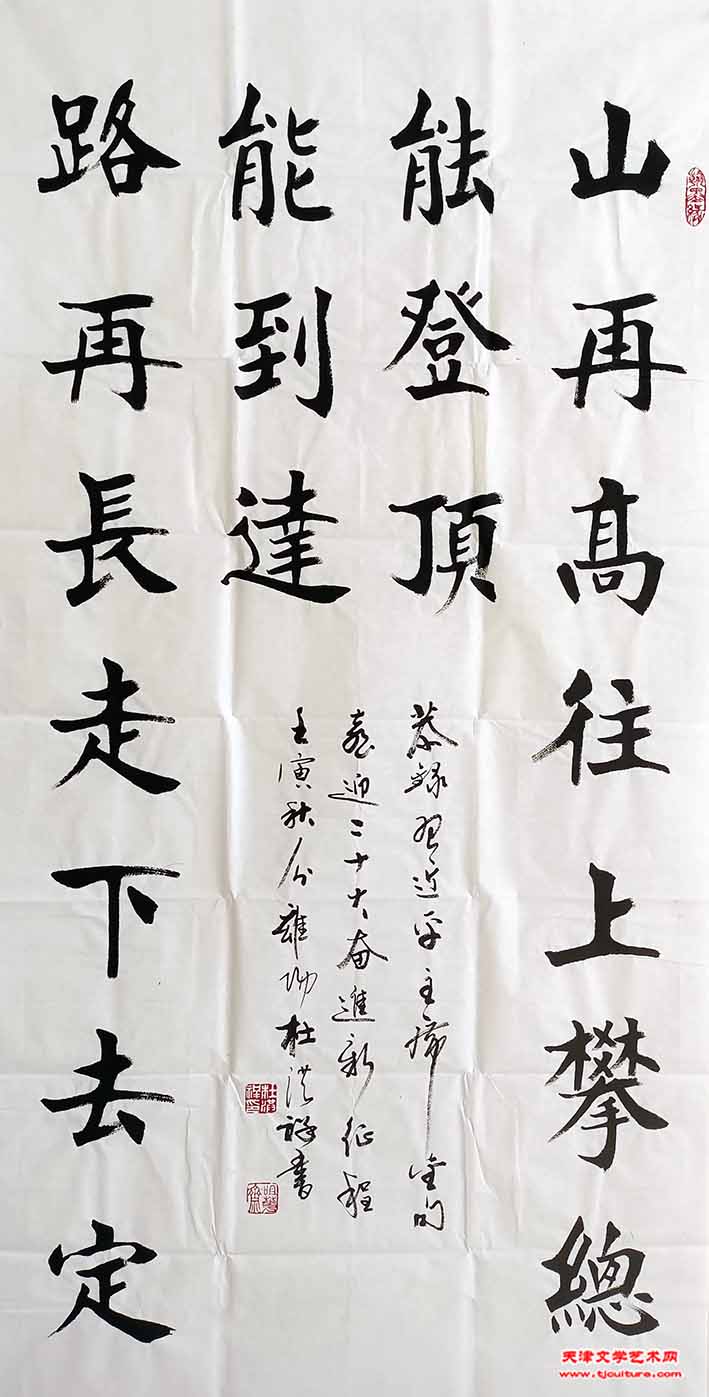 山再高往上攀總
能登頂
路再長走下去定
能到達
恭録習近平主席金句
喜迎二十大奋進新征程
壬寅秋分雍陽杜洪祥書
杜洪祥印
天津文学艺术网
www.tjculture.com